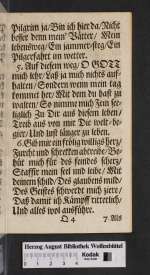 Pilgrim ja/ Bin ich hier da/ Nicht
besser denn mein' Väter/ Mein
lebensweg/ Ein jammersteg/ Ein
Pilgerfahrt im wetter.
5. Auf diesem weg/ O GOTT
mich lehr/ Laß ja mich nichts auf-
halten/ Sondern wenn mein tag
kommet her/ Mit dem du hast zu
walten/ So nimme mich Fein see-
liglich Zu dir aus diesem leben/
Treib aus von mir Die welt-be-
gier/ Und lust länger zu leben.
6. Gib mir ein frölig willigs hertz/
Furcht und schrecken abtreibe/ Be-
hüt mich für des feindes schertz/
Staffir mein seel und leibe/ Mit
deinem schild/ Des glaubens mild/
Des Geistes schwerdt mich ziere/
Daß damit ich Kämpff ritterlich/
Und alles wol ausführe.
Q 4 7. Als
Herzog August Bibliothek Wolfenbüttel
Kodak